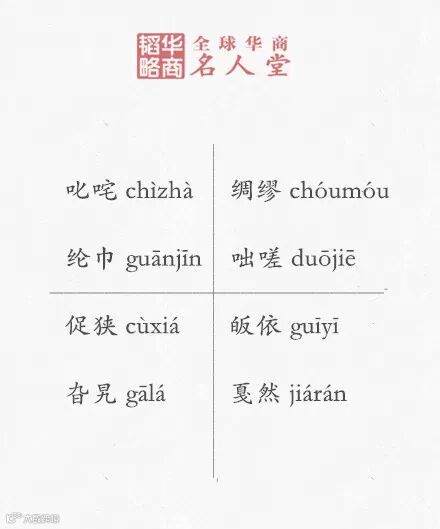 华商韬略
全球华商
名人堂
叱咤 chìzhà
绸缪 chóumóu
纶巾 guānjīn
咄嗟 duōjiē
促狭 cùxiá
皈依 guīyī
旮旯 gālá
戛然 jiárán